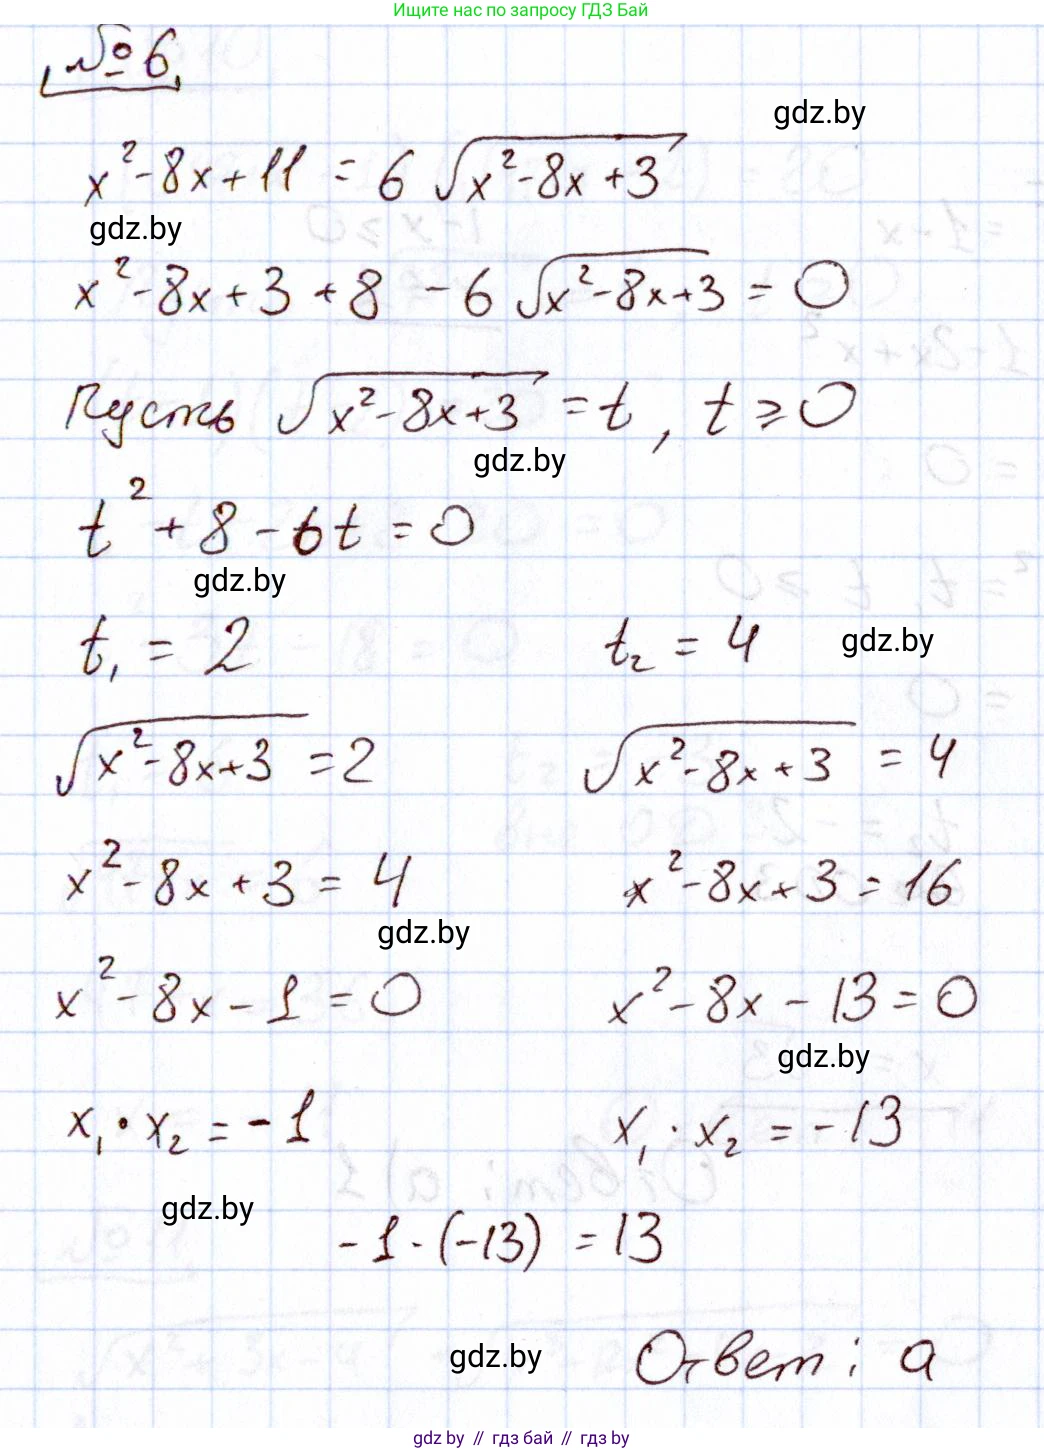 Ищите нас по запросу ГДЗ Бай
№ 6.
gdz.by
x² - 8x + 11 = 6 √(x² - 8x + 3)
gdz.by
x² - 8x + 3 + 8 - 6 √(x² - 8x + 3) = 0
Пусть √(x² - 8x + 3) = t, t ≥ 0
gdz.by
t² + 8 - 6t = 0
gdz.by
t₁ = 2 t₂ = 4 gdz.by
√(x² - 8x + 3) = 2 √(x² - 8x + 3) = 4
x² - 8x + 3 = 4 x² - 8x + 3 = 16
gdz.by
x² - 8x - 1 = 0 x² - 8x - 13 = 0
gdz.by
x₁ · x₂ = -1 x₁ · x₂ = -13
gdz.by
-1 · (-13) = 13
gdz.by Ответ: а
gdz.by // гдз бай // gdz.by